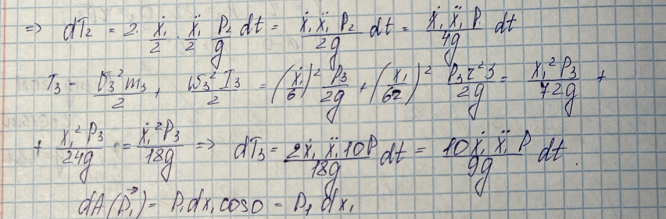 ⇒ dT₂ = 2·ẋ₁/2·ẍ₁/2 P₂/g dt = ẋ₁ẍ₁P₂/2g dt = ẋ₁ẍ₁P/4g dt
T₃ = V₃²m₃/2 + ω₃²I₃/2 = (ẋ₁/6)² P₃/2g + (ẋ₁/6r)² P₃r²3/2g = ẋ₁²P₃/72g +
+ ẋ₁²P₃/24g = ẋ₁²P₃/18g ⇒ dT₃ = 2ẋ₁ẍ₁10P/18g dt = 10ẋ₁ẍ₁P/9g dt.
dA(P₁) = P₁dx₁cos0 = P₁dx₁